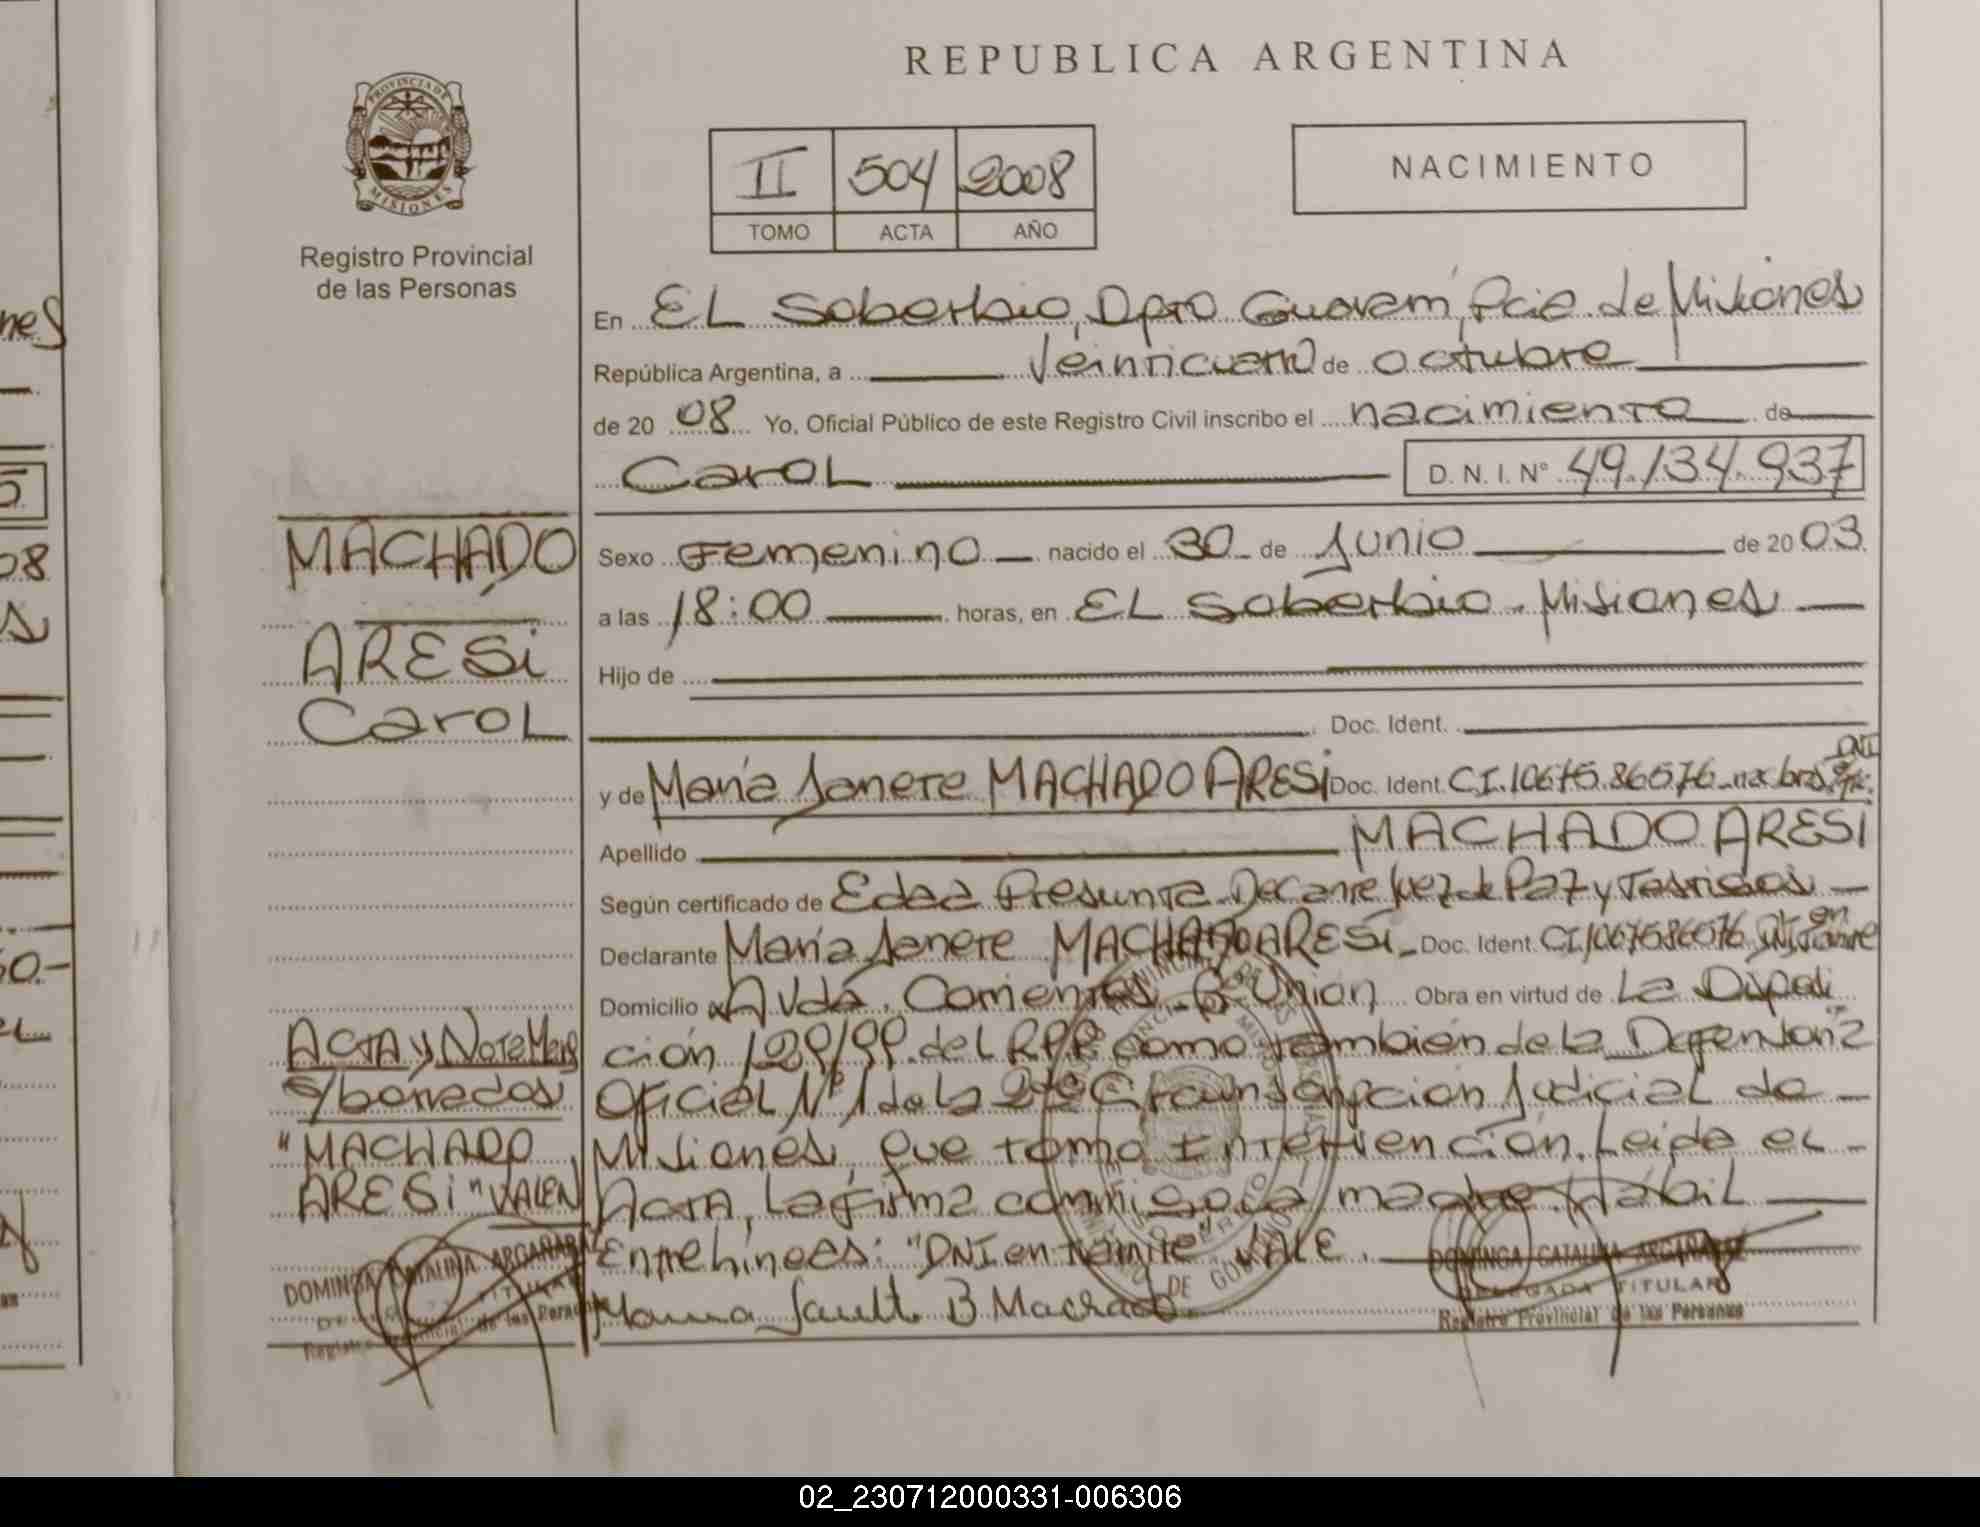 REPUBLICA ARGENTINA
PROVINCIA DE MISIONES
Registro Provincial
de las Personas
II 504 2008
TOMO ACTA AÑO
NACIMIENTO
En EL Soberbio, Dpto Guaraní, Pcia. de Misiones
República Argentina, a veinticuatro de octubre
de 2008 Yo, Oficial Público de este Registro Civil inscribo el nacimiento de
Carol D. N. I. Nº 49.134.937
MACHADO
ARESi
Carol
Sexo Femenino nacido el 30 de Junio de 2003
a las 18:00 horas, en EL Soberbio - Misiones
Hijo de
Doc. Ident.
y de María Janete MACHADO ARESi Doc. Ident. CI.10675.86576 DNI
Apellido MACHADO ARESI
Según certificado de Edad Presunta Dec ante Juez de Paz y Testigos
Declarante María Janete MACHADO ARESi Doc. Ident. CI DNI en
Domicilio Avda. Corrientes - Bº Unión Obra en virtud de La Disposi
ción 129/99 del RPP. como también de la Defensoría
Oficial Nº 1 de la 2da Circunscripción Judicial de
Misiones, que tomó Intervención. Leída el
Acta, La firma conmigo la madre. Hábil
Entrelíneas: "DNI en trámite" VALE.
B Machado
ACTA y Nota Marg
s/borrados
"MACHADO
ARESi" VALEN
DOMINGA CATALINA ARGAÑARAZ
Registro Provincial de las Personas
DOMINGA CATALINA ARGAÑARAZ
DELEGADA TITULAR
Registro Provincial de las Personas
02_230712000331-006306